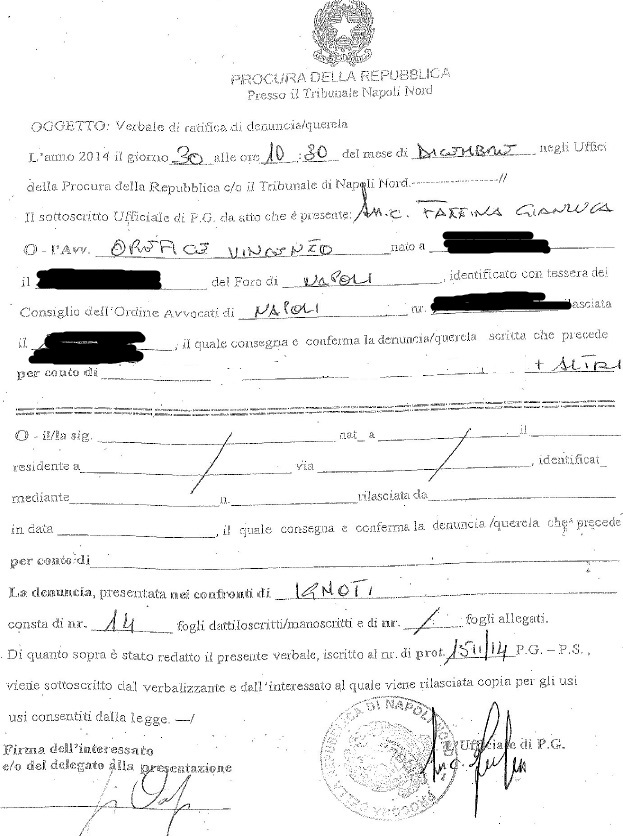 PROCURA DELLA REPUBBLICA
Presso il Tribunale Napoli Nord
OGGETTO: Verbale di ratifica di denuncia/querela
L'anno 2014 il giorno 30 alle ore 10:30 del mese di DICEMBRE negli Uffici
della Procura della Repubblica c/o il Tribunale di Napoli Nord.-------------------//
Il sottoscritto Ufficiale di P.G. da atto che è presente: GIANLUCA
O - l'Avv. OREFICE VINCENZO nato a
il del Foro di NAPOLI, identificato con tessera del
Consiglio dell'Ordine Avvocati di NAPOLI nr. rilasciata
il , il quale consegna e conferma la denuncia/querela scritta che precede
per conto di + ALTRI
O - il/la sig. nat_ a il
residente a via , identificat_
mediante n. rilasciata da
in data , il quale consegna e conferma la denuncia /querela che precede
per conto di
La denuncia, presentata nei confronti di IGNOTI
consta di nr. 14 fogli dattiloscritti/manoscritti e di nr. / fogli allegati.
Di quanto sopra è stato redatto il presente verbale, iscritto al nr. di prot. P.G. – P.S. ,
viene sottoscritto dal verbalizzante e dall'interessato al quale viene rilasciata copia per gli usi
usi consentiti dalla legge. —/
Firma dell'interessato
e/o del delegato alla presentazione
L'Ufficiale di P.G.